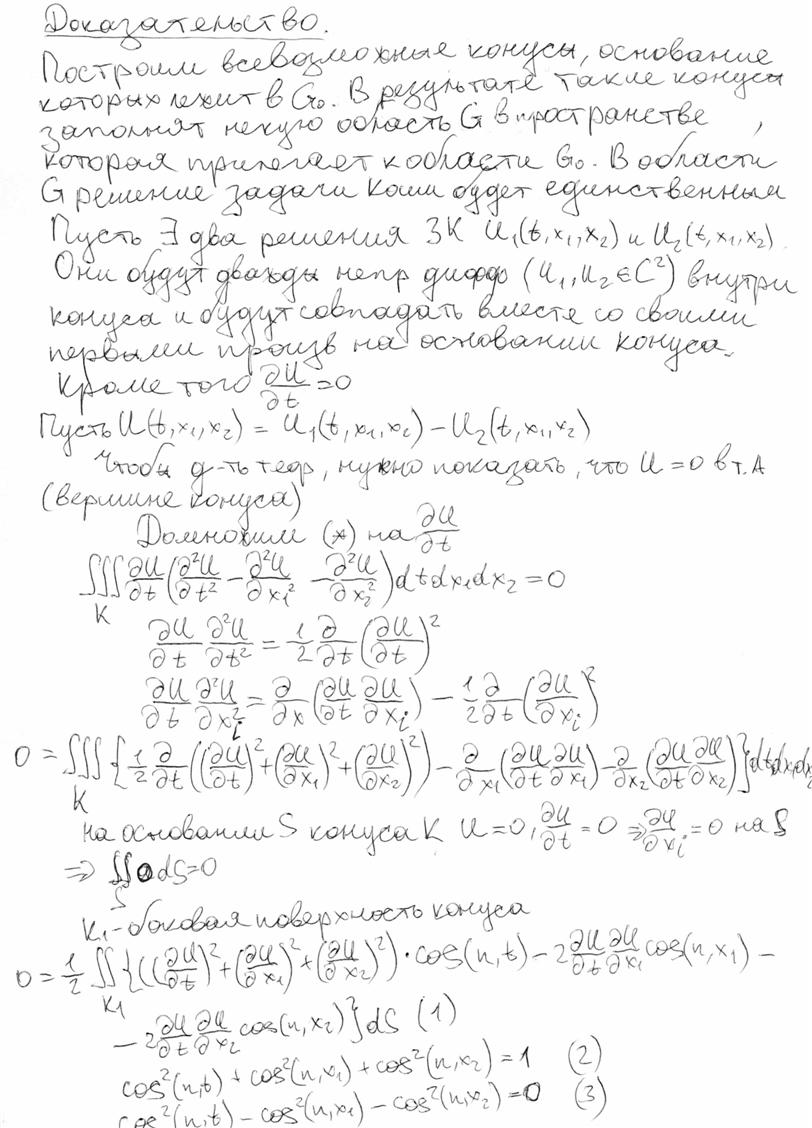 Доказательство.
Построим всевозможные конусы, основание
которых лежит в G₀. В результате такие конусы
заполнят некую область G в пространстве ,
которая прилегает к области G₀. В области
G решение задачи Коши будет единственным
Пусть ∃ два решения ЗК U₁(t,x₁,x₂) и U₂(t,x₁,x₂).
Они будут дважды непр дифф (U₁,U₂∈C²) внутри
конуса и будут совпадать вместе со своими
первыми произв на основании конуса.
Кроме того ∂U/∂t=0
Пусть U(t,x₁,x₂) = U₁(t,x₁,x₂) − U₂(t,x₁,x₂)
Чтобы д-ть теор, нужно показать, что U=0 в т.А
(вершине конуса)
Домножим (*) на ∂U/∂t
∭_K ∂U/∂t (∂²U/∂t² − ∂²U/∂x₁² − ∂²U/∂x₂²) dt dx₁ dx₂ = 0
∂U/∂t ∂²U/∂t² = 1/2 ∂/∂t (∂U/∂t)²
∂U/∂t ∂²U/∂x_i² = ∂/∂x (∂U/∂t ∂U/∂x_i) − 1/2 ∂/∂t (∂U/∂x_i)²
0 = ∭_K {1/2 ∂/∂t ((∂U/∂t)² + (∂U/∂x₁)² + (∂U/∂x₂)²) − ∂/∂x₁ (∂U/∂t ∂U/∂x₁) − ∂/∂x₂ (∂U/∂t ∂U/∂x₂)} dt dx₁ dx₂
На основании S конуса K U=0, ∂U/∂t=0 ⇒ ∂U/∂x_i=0 на S
⇒ ∬_S 0 dS=0
K₁-боковая поверхность конуса
0 = 1/2 ∬_K₁ {((∂U/∂t)² + (∂U/∂x₁)² + (∂U/∂x₂)²)·cos(n,t) − 2 ∂U/∂t ∂U/∂x₁ cos(n,x₁) −
− 2 ∂U/∂t ∂U/∂x₂ cos(n,x₂)} dS (1)
cos²(n,t) + cos²(n,x₁) + cos²(n,x₂) = 1 (2)
cos²(n,t) − cos²(n,x₁) − cos²(n,x₂) = 0 (3)